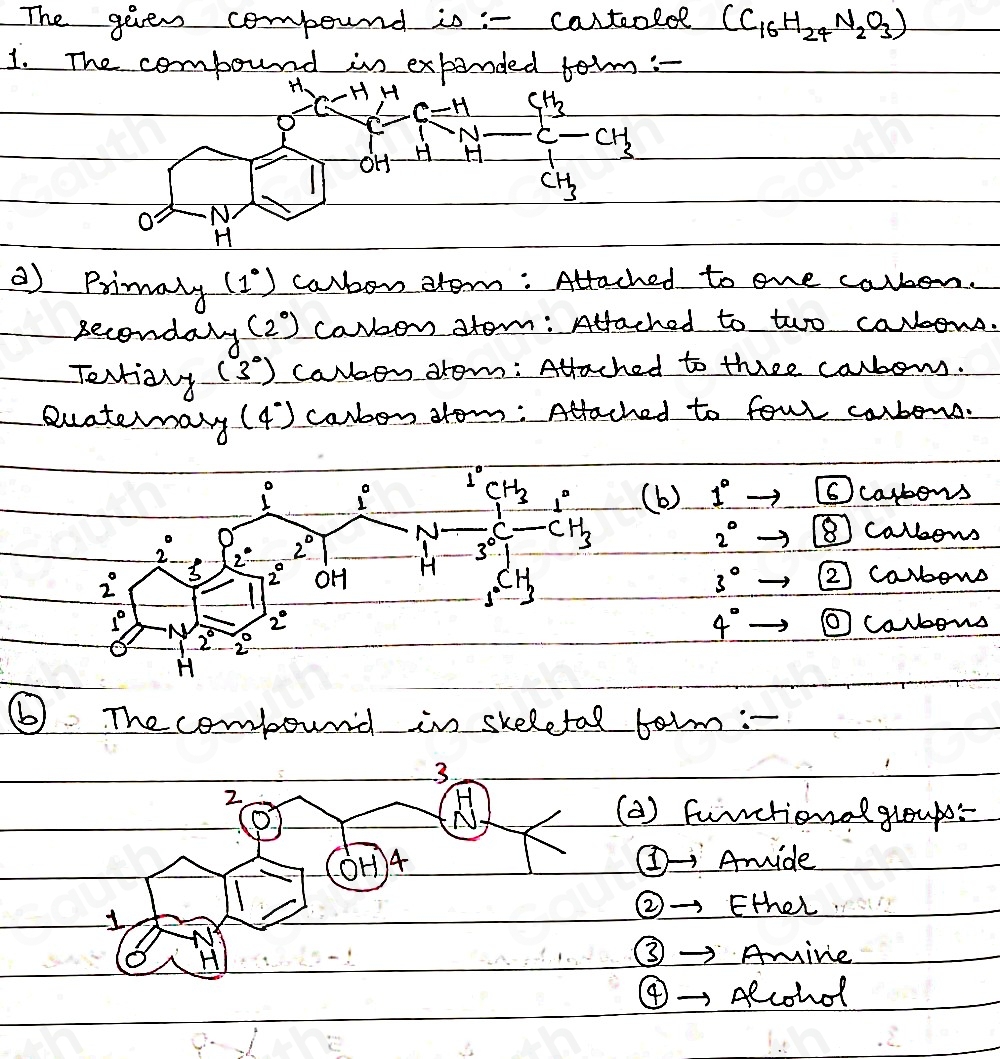 The given compound is :- carteolol (C₁₆H₂₄N₂O₃)
1. The compound in expanded form :-
H C-H H C C-H CH₃
O OH H N H C-CH₃
CH₃
O N H
a) Primary (1°) carbon atom : Attached to one carbon.
secondary (2°) carbon atom : Attached to two carbons.
Tertiary (3°) carbon atom : Attached to three carbons.
Quaternary (4°) carbon atom : Attached to four carbons.
1° 1° 1° CH₃ 1° (b) 1° → 6 carbons
O 2° N-C-CH₃ 2° → 8 carbons
2° 2° OH H 3° 3° → 2 carbons
2° 3° 2° 1° CH₃ 4° → 0 carbons
1° 2°
O N 2° 2°
H
(b) The compound in skeletal form :-
3
2 H (a) Functional groups :-
O N
OH 4 ① → Amide
1 ② → Ether
O N H ③ → Amine
④ → Alcohol
Gauth